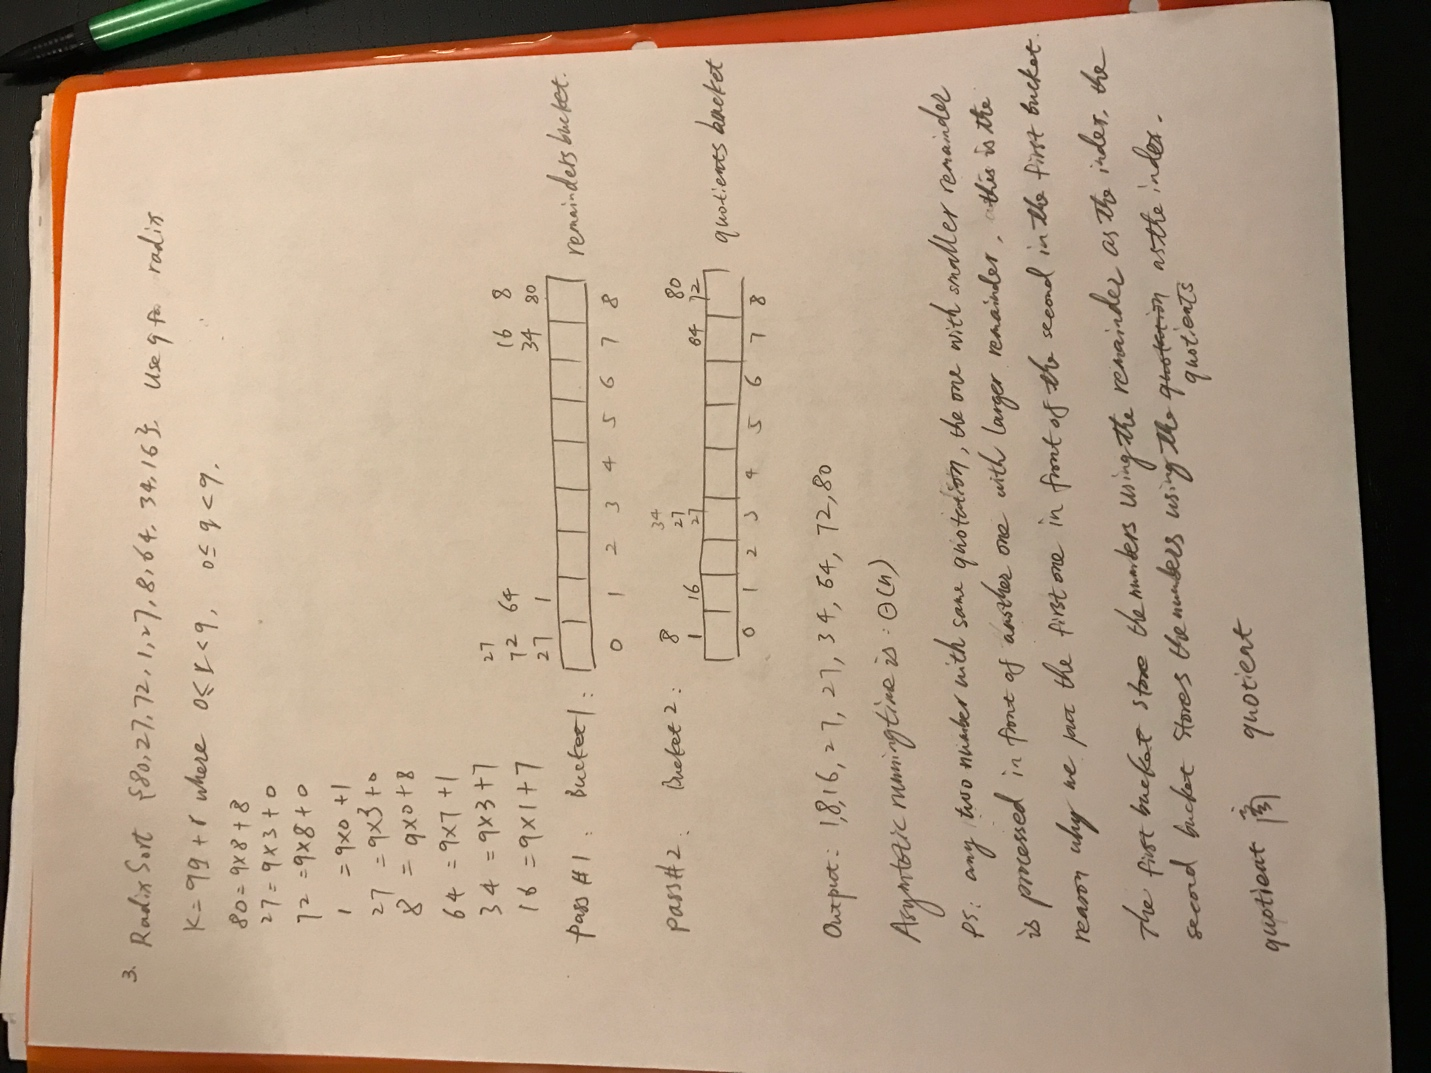 3. Radix Sort {80,27,72,1,27,8,64,34,16} Use 9 for radix
K = 9q + r where 0≤r<9, 0≤q<9.
80 = 9×8+8
27 = 9×3+0
72 = 9×8+0
1 = 9×0+1
27 = 9×3+0
8 = 9×0+8
64 = 9×7+1
34 = 9×3+7
16 = 9×1+7
27 16 8
72 64 34 80
27 1
Pass #1: Bucket 1: remainders bucket.
0 1 2 3 4 5 6 7 8
34
8 27 80
1 16 27 64 72
Pass #2: Bucket 2: quotients bucket
0 1 2 3 4 5 6 7 8
Output: 1,8,16,27,27,34,64,72,80
Asymtotic running time is: Θ(n)
PS: any two number with same quotation, the one with smaller remainder
is processed in front of another one with larger remainder, this is the
reason why we put the first one in front of the second in the first bucket.
The first bucket store the numbers using the remainder as the index, the
second bucket stores the numbers using the quotation as the index.
quotients
quotient 商 quotient